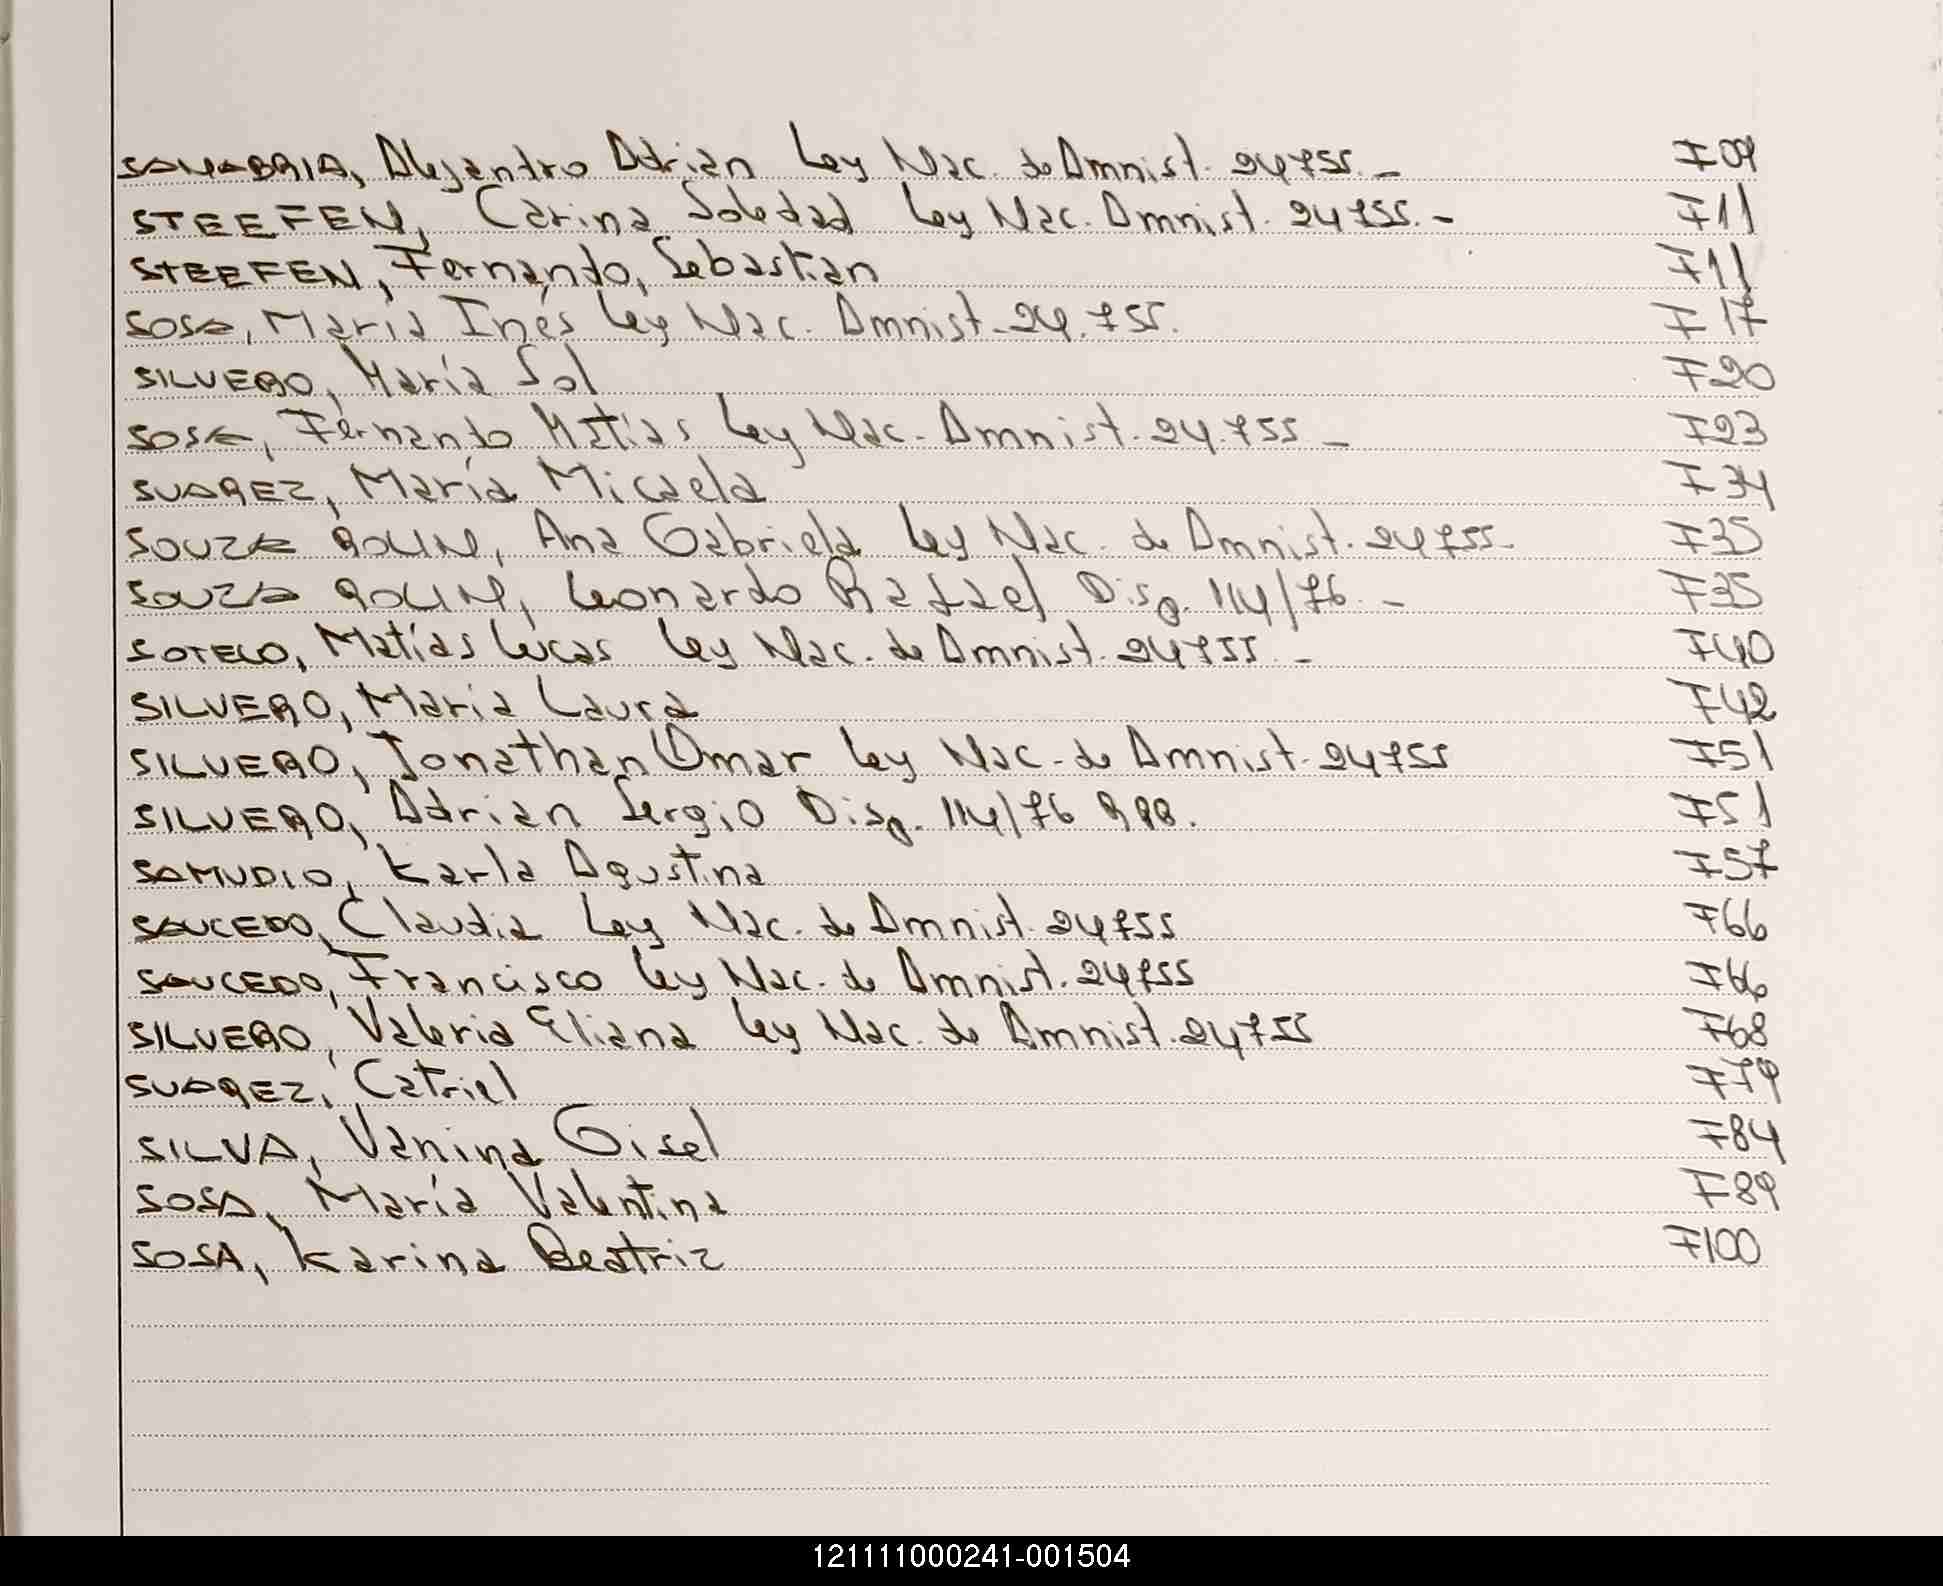 SANABRIA, Alejandro Adrian Ley Nac. de Amnist. 24755.- F09
STEEFEN, Carina Soledad Ley Nac. Amnist. 24755.- F11
STEEFEN, Fernando, Sebastian F11
SOSA, María Inés Ley Nac. Amnist. 24.755. F17
SILVERO, María Sol F20
SOSA, Fernando Matías Ley Nac. Amnist. 24.755- F23
SUAREZ, María Micaela F34
SOUZA ROLIN, Ana Gabriela Ley Nac. de Amnist. 24755- F35
SOUZA ROLIN, Leonardo Rafael Disp. 114/76.- F35
SOTELO, Matías Lucas Ley Nac. de Amnist. 24755.- F40
SILVERO, Maria Laura F42
SILVERO, Jonathan Omar Ley Nac. de Amnist. 24755 F51
SILVERO, Adrian Sergio Disp. 114/76 F51
SAMUDIO, Karla Agustina F57
SAUCEDO, Claudia Ley Nac. de Amnist. 24755 F66
SAUCEDO, Francisco Ley Nac. de Amnist. 24755 F66
SILVERO, Valeria Eliana Ley Nac. de Amnist. 24755 F68
SUAREZ, Catriel F79
SILVA, Vanina Gisel F84
SOSA, María Valentina F89
SOSA, Karina Beatriz F100
121111000241-001504